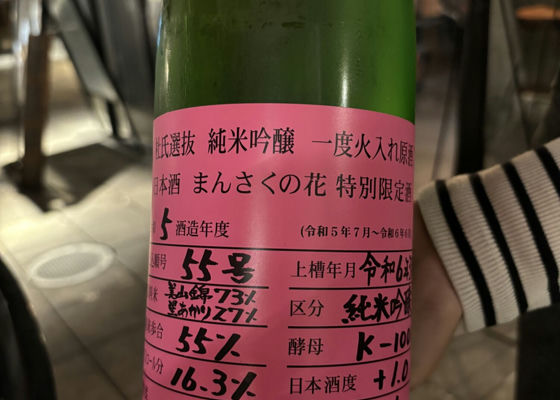 杜氏選抜 純米吟醸 一度火入れ原酒
日本酒 まんさくの花 特別限定酒
5酒造年度 (令和5年7月~令和6年6
順号 55号 上槽年月 令和6
米 美山錦73% 星あかり27% 区分 純米吟醸
歩合 55% 酵母 K-100
ール分 16.3% 日本酒度 +1.0